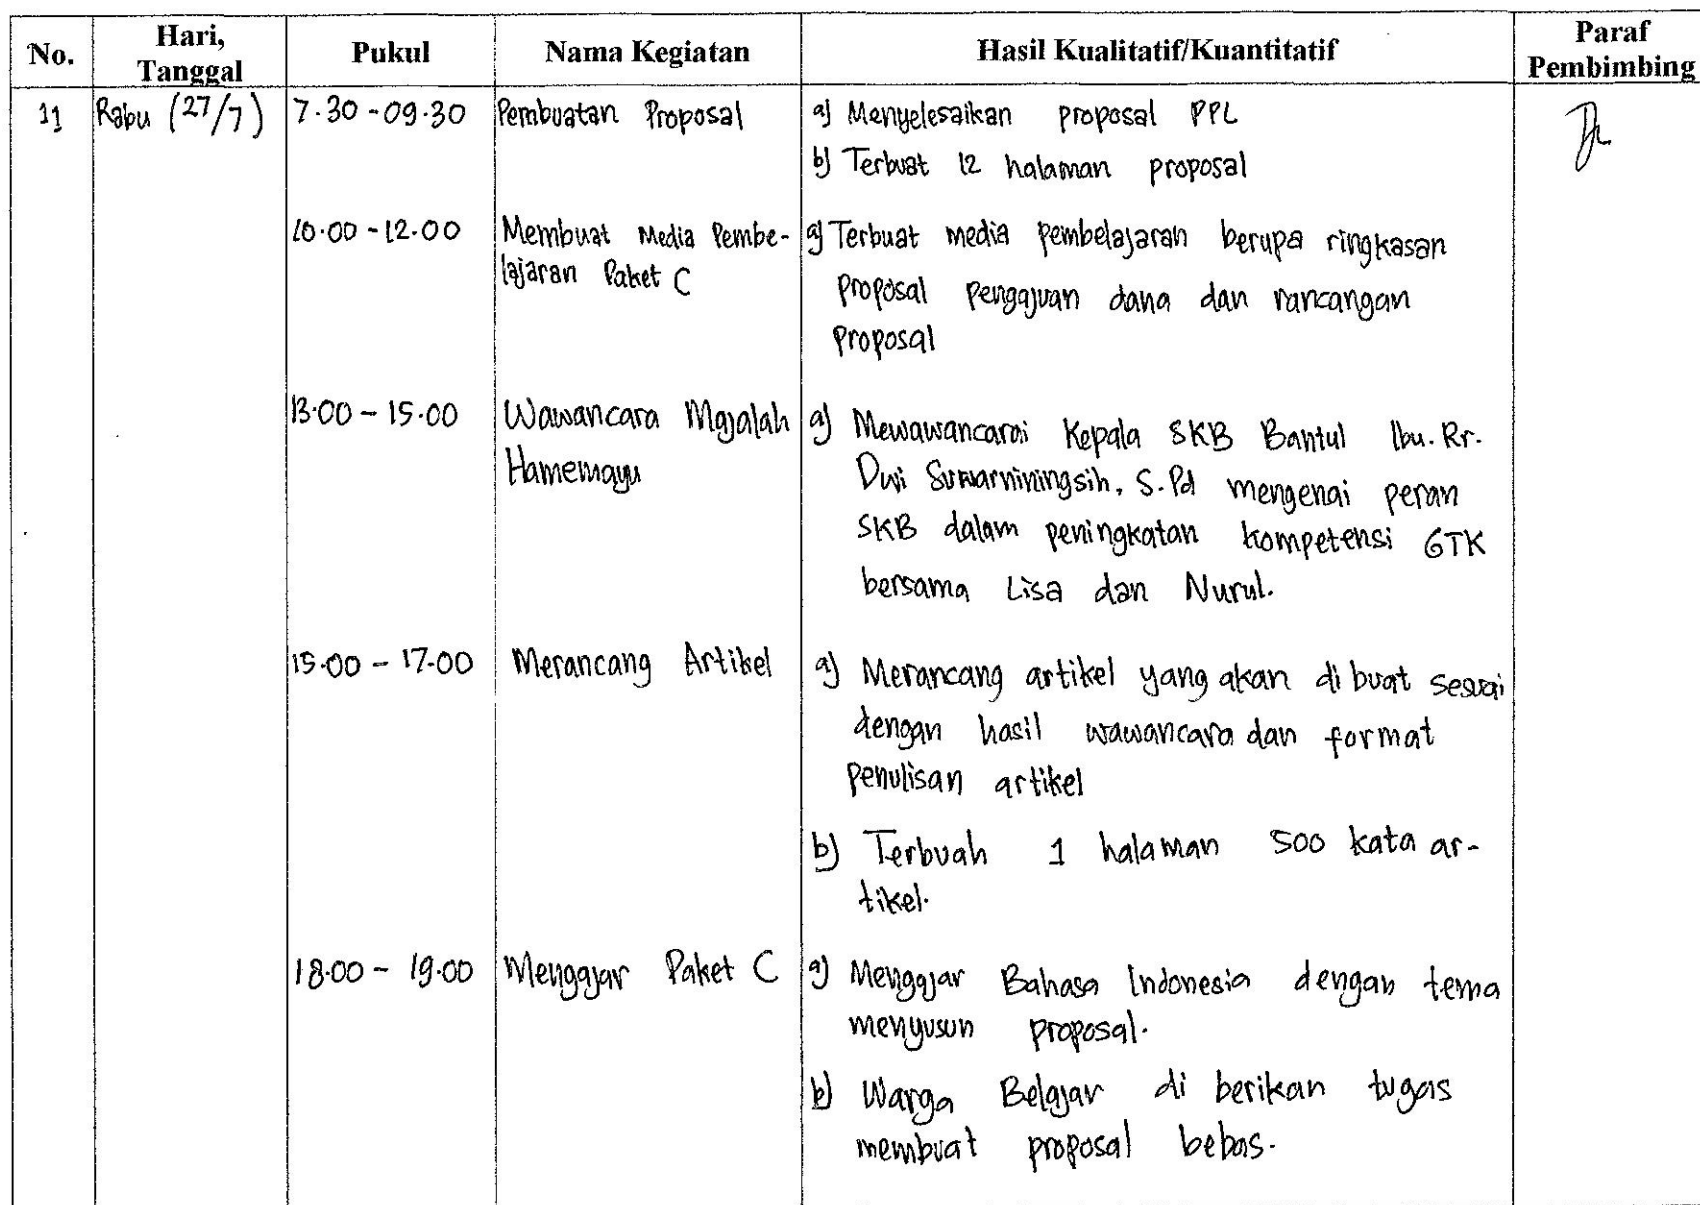 No. Hari, Tanggal Pukul Nama Kegiatan Hasil Kualitatif/Kuantitatif Paraf Pembimbing
11 Rabu (27/7) 7.30 - 09.30 Pembuatan Proposal a) Menyelesaikan proposal PPL
b) Terbuat 12 halaman proposal
10.00 - 12.00 Membuat Media Pembe- a) Terbuat media pembelajaran berupa ringkasan
lajaran Paket C proposal pengajuan dana dan rancangan
proposal
13.00 - 15.00 Wawancara Majalah a) Mewawancarai Kepala SKB Bantul Ibu. Rr.
Hamemayu Dwi Suwarniningsih, S.Pd mengenai peran
SKB dalam peningkatan kompetensi GTK
bersama Lisa dan Nurul.
15.00 - 17.00 Merancang Artikel a) Merancang artikel yang akan di buat sesuai
dengan hasil wawancara dan format
penulisan artikel
b) Terbuah 1 halaman 500 kata ar-
tikel.
18.00 - 19.00 Mengajar Paket C a) Mengajar Bahasa Indonesia dengan tema
menyusun proposal.
b) Warga Belajar di berikan tugas
membuat proposal bebas.